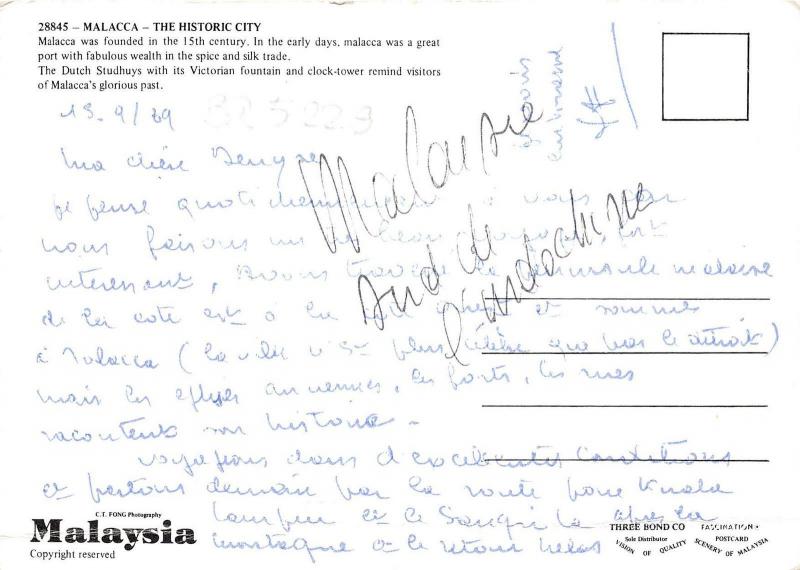 28845 – MALACCA – THE HISTORIC CITY
Malacca was founded in the 15th century. In the early days, malacca was a great
port with fabulous wealth in the spice and silk trade.
The Dutch Studhuys with its Victorian fountain and clock-tower remind visitors
of Malacca's glorious past.
Ma chère Denyse
Je pense quotidiennement à vous car
nous faisons un beau voyage, fort
intéressant, avons la péninsule malaise
de la côte est à la côte et sommes
à Malacca (la ville n'est plus célèbre que par le détroit)
mais les églises anciennes, les forts, les rues
racontent son histoire -
voyageons dans d'excellentes conditions
et partons demain par la route pour Kuala
Lumpur et le après la
montagne et le retour hélas
Malaysie
Sud de
l'Indochine
C.T. FONG Photography
Malaysia
Copyright reserved
THREE BOND CO
Sole Distributor
VISION OF QUALITY
FASCINATION
POSTCARD
SCENERY OF MALAYSIA